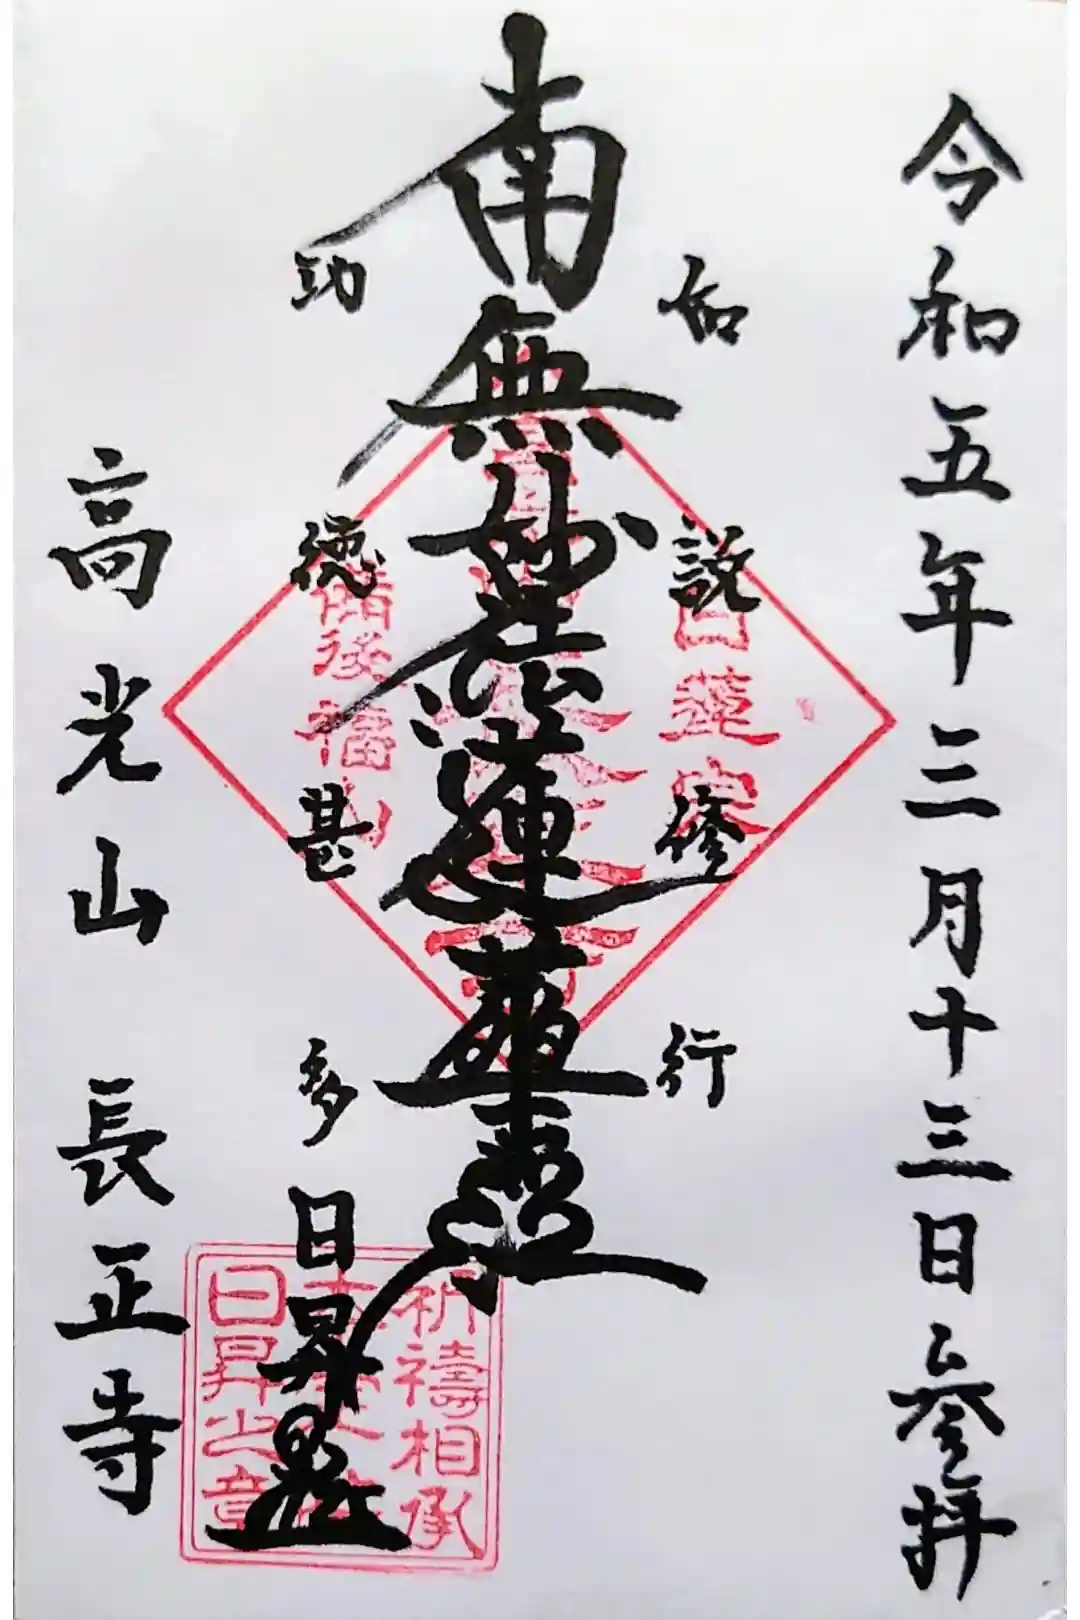 令和五年三月十三日参拝
如説修行
南無妙法蓮華経
功徳甚多
日昇
高光山 長正寺
日蓮宗
備後福山
祈禱相承
日昇之章